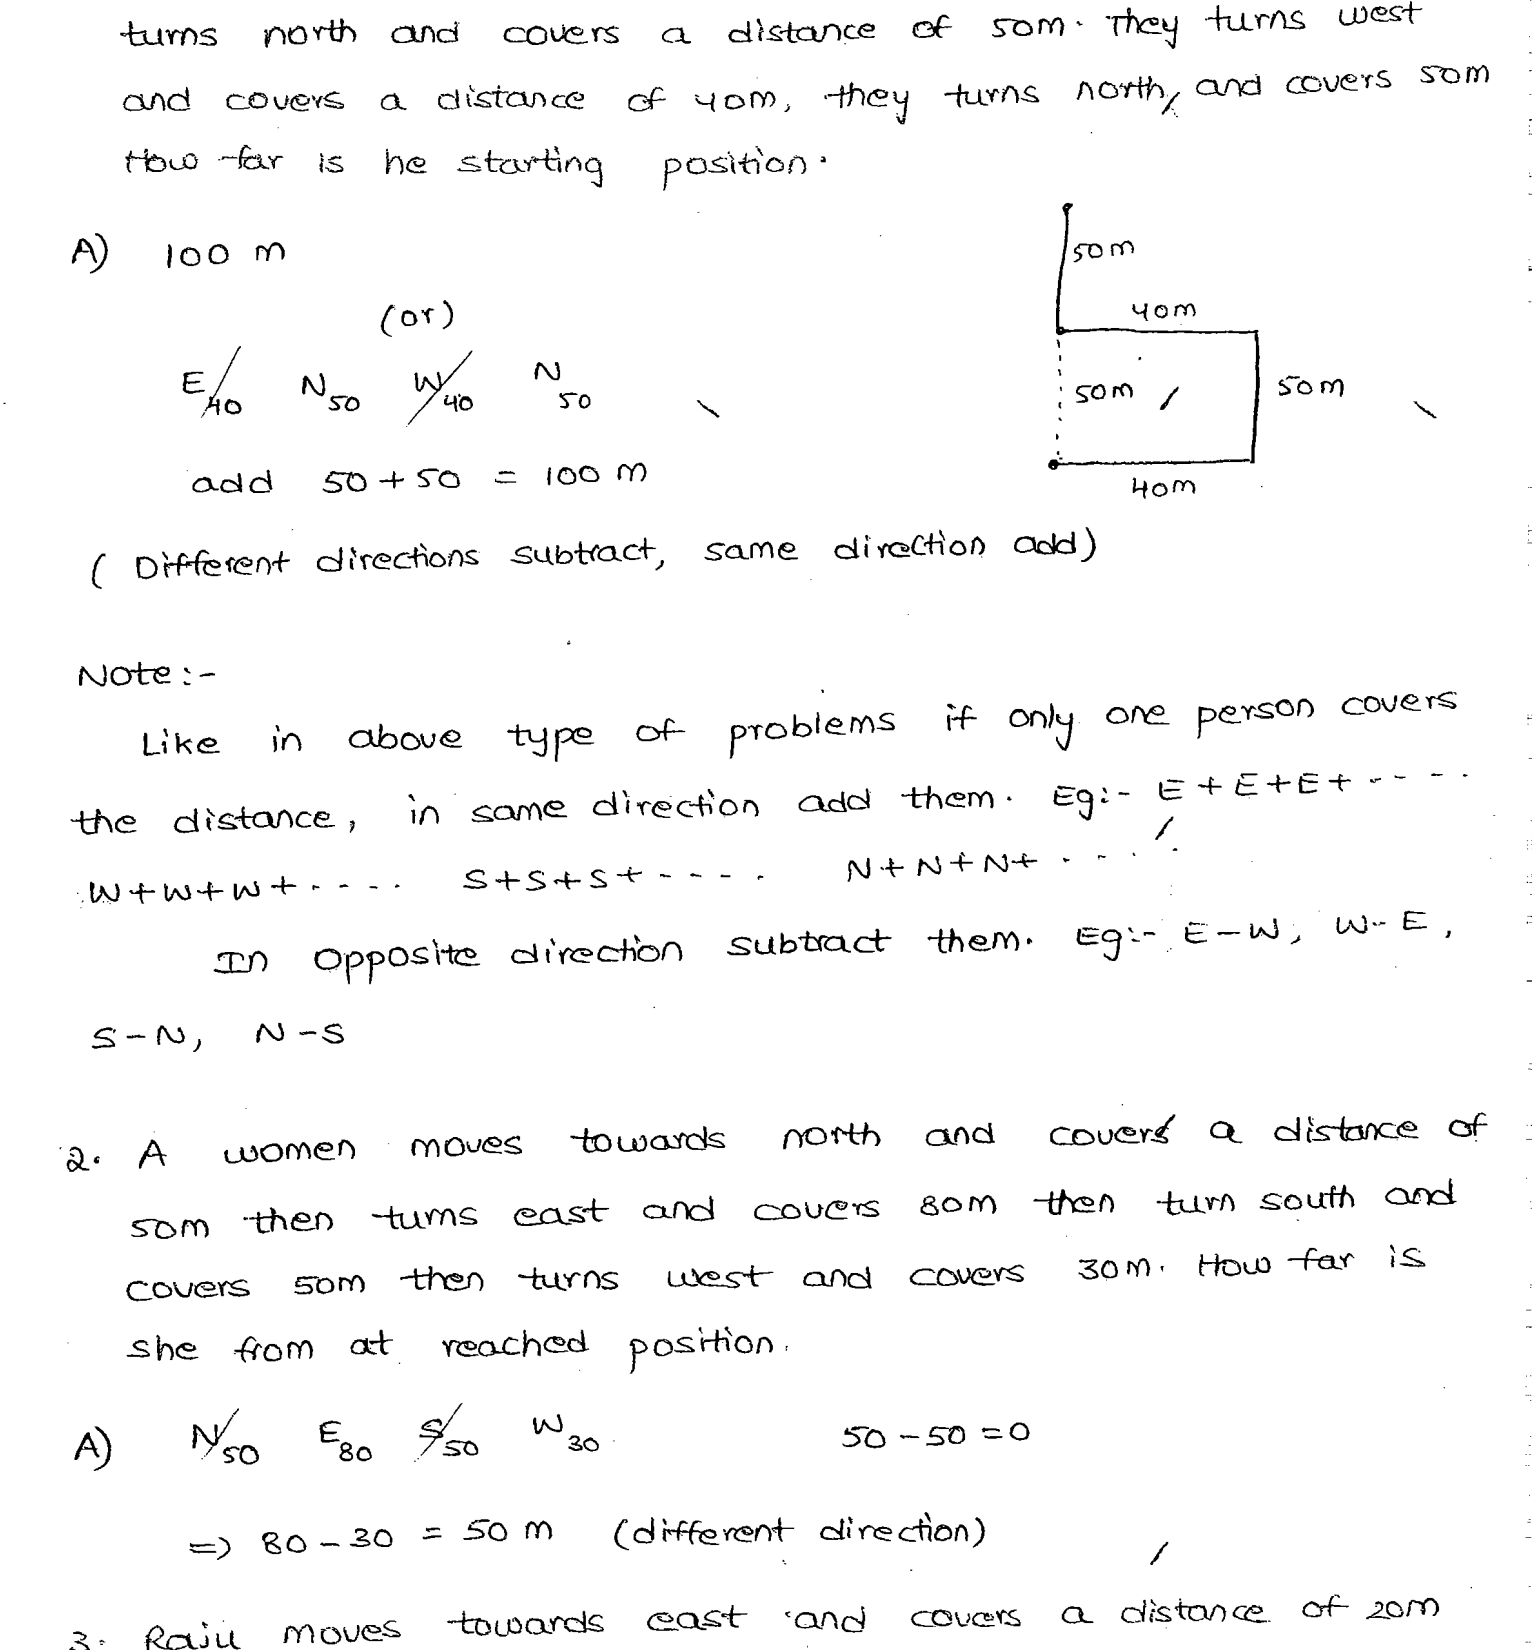 turns north and covers a distance of 50m. They turns west
and covers a distance of 40m, they turns north, and covers 50m
How far is he starting position.
A) 100 m
50m
(or)
40m
E/40 N50 W/40 N50
50m
50m
add 50+50 = 100 m
40m
( Different directions subtract, same direction add)
Note :-
Like in above type of problems if only one person covers
the distance, in same direction add them. Eg:- E+E+E+-----
W+W+W+----- S+S+S+----- N+N+N+.....
In opposite direction subtract them. Eg:- E-W, W-E,
S-N, N-S
2. A women moves towards north and covers a distance of
50m then turns east and covers 80m then turn south and
covers 50m then turns west and covers 30m. How far is
she from at reached position.
A) N/50 E80 S/50 W30 50-50=0
=> 80-30 = 50 m (different direction)
3. Raju moves towards east and covers a distance of 20m